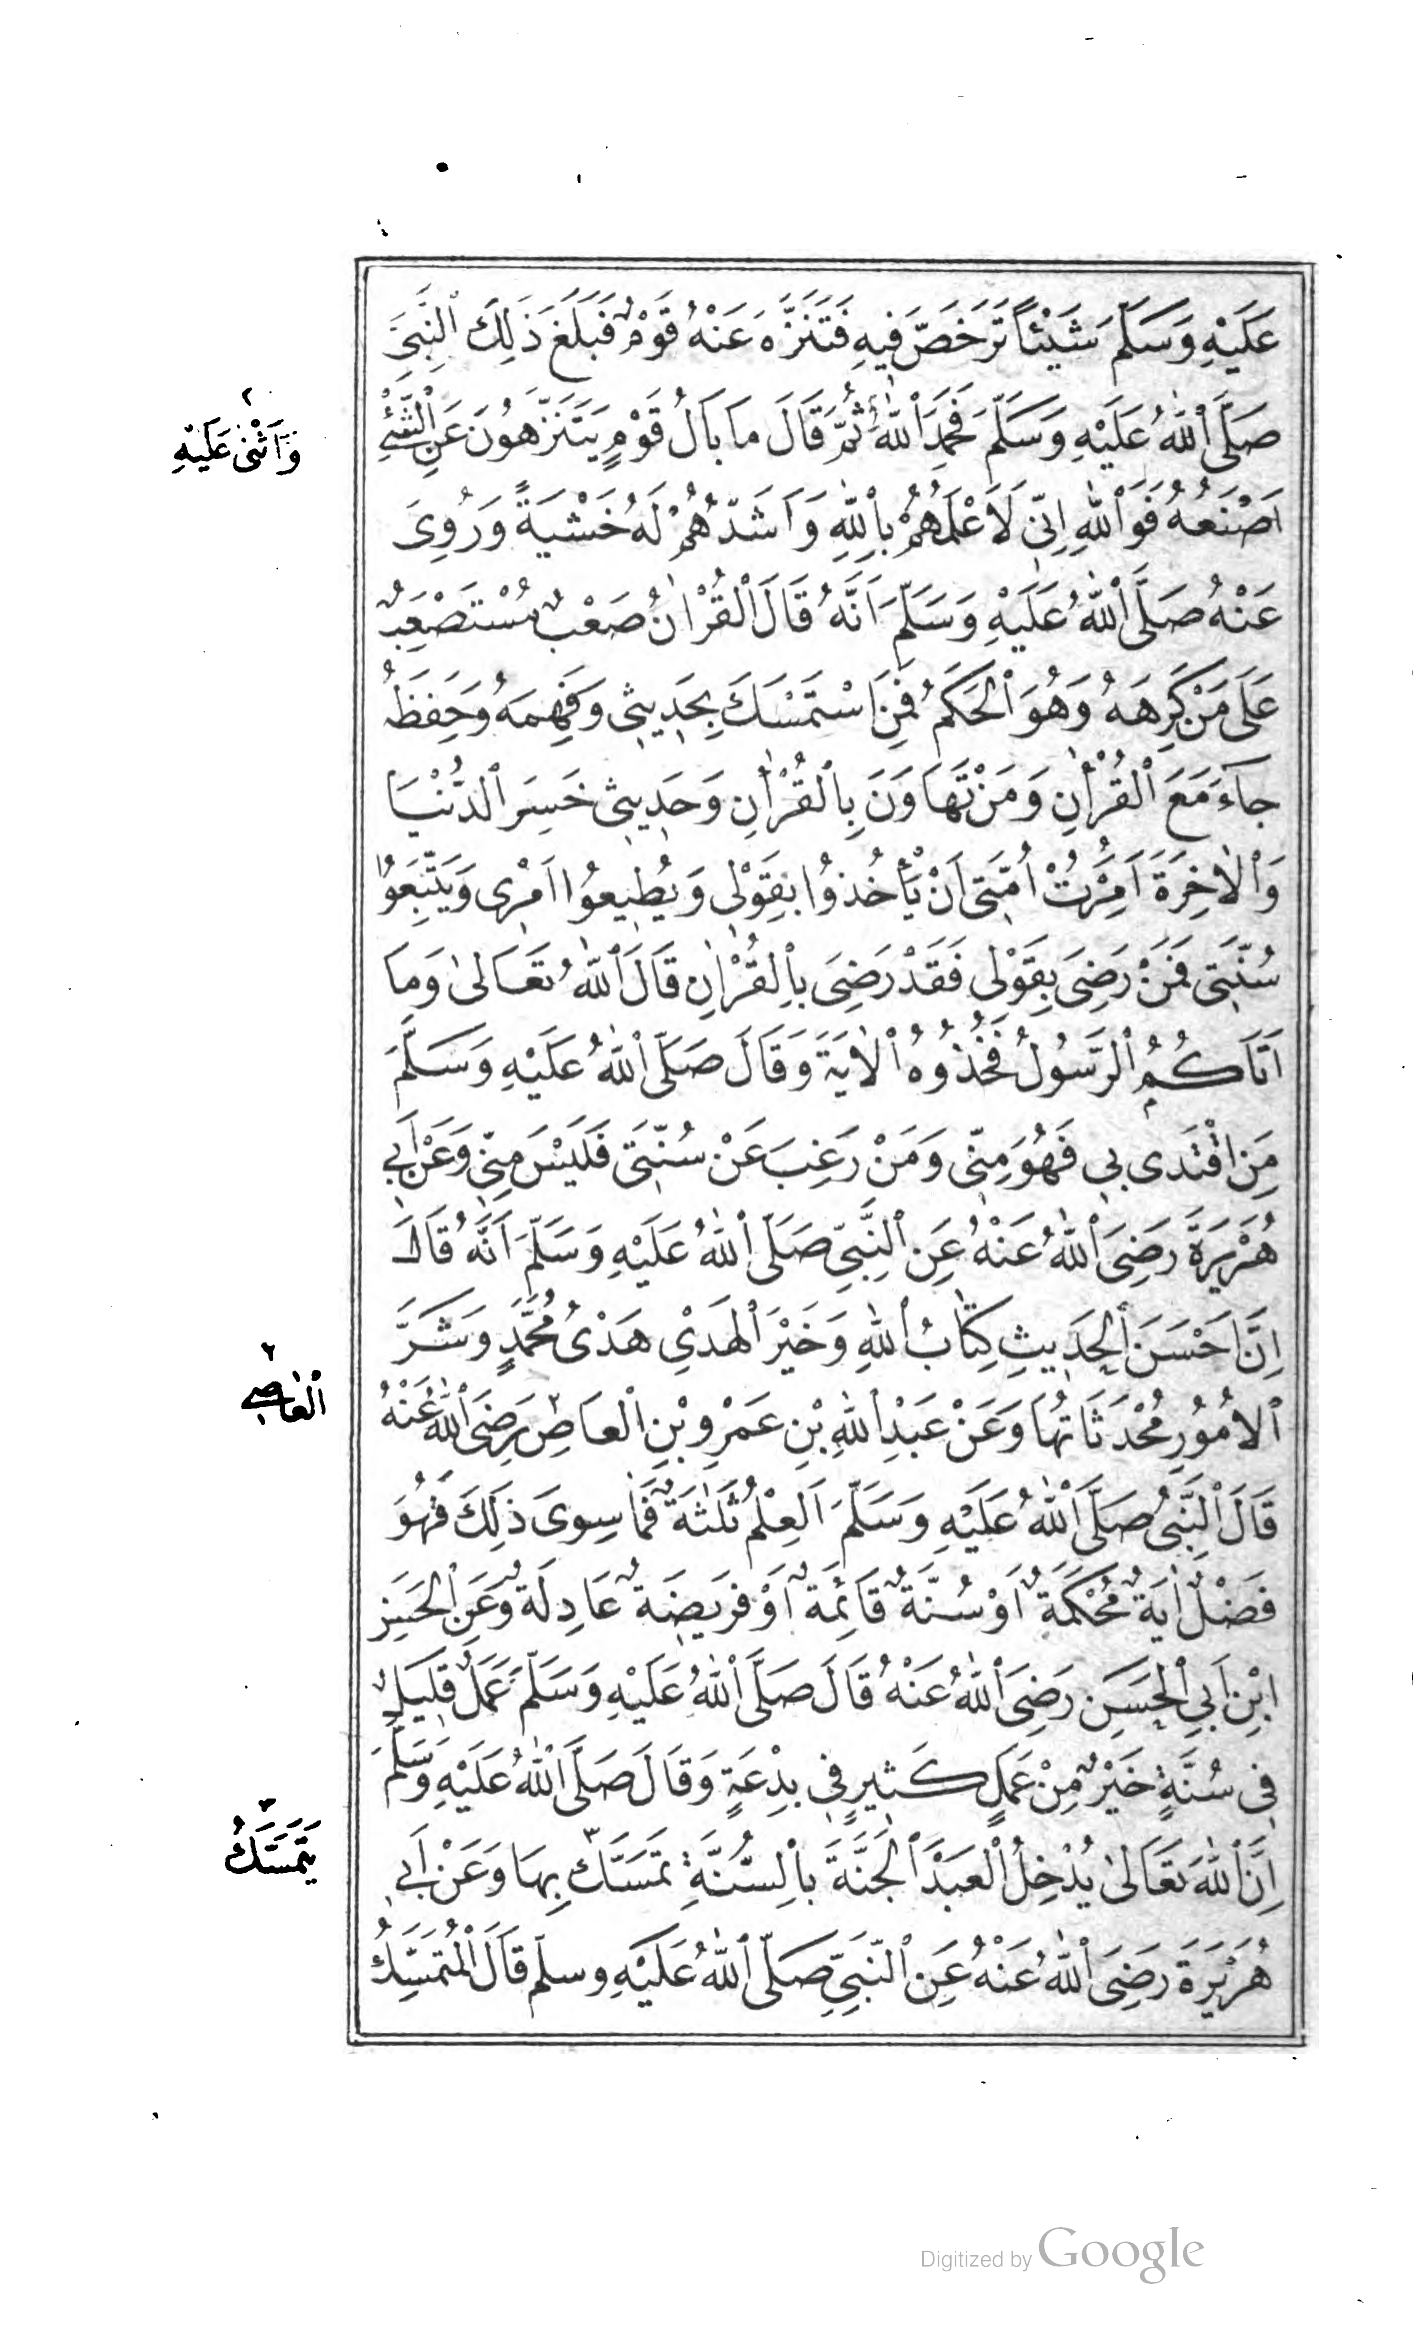 عَلَيْهِ وَسَلَّمَ شَيْئاً تَرَخَّصَ فِيهِ فَتَنَزَّهَ عَنْهُ قَوْمٌ فَبَلَغَ ذَلِكَ ٱلنَّبِىَّ
صَلَّى ٱللهُ عَلَيْهِ وَسَلَّمَ فَحَمِدَ ٱللهَ ثُمَّ قَالَ مَا بَالُ قَوْمٍ يَتَنَزَّهُونَ عَنِ ٱلشَّىْءِ
اَصْنَعُهُ فَوَٱللهِ اِنِّى لَاَعْلَمُهُمْ بِاللهِ وَاَشَدُّهُمْ لَهُ خَشْيَةً وَرُوِىَ
عَنْهُ صَلَّى ٱللهُ عَلَيْهِ وَسَلَّمَ اَنَّهُ قَالَ ٱلْقُرْاٰنُ صَعْبٌ مُسْتَصْعَبٌ
عَلَى مَنْ كَرِهَهُ وَهُوَ ٱلْحَكَمُ فَمَنِ اسْتَمْسَكَ بِحَدِيثِى وَفَهِمَهُ وَحَفِظَهُ
جَاءَ مَعَ ٱلْقُرْاٰنِ وَمَنْ تَهَاوَنَ بِالْقُرْاٰنِ وَحَدِيثِى خَسِرَ ٱلدُّنْيَا
وَٱلْاٰخِرَةَ اُمِرَتْ اُمَّتِى اَنْ يَأْخُذُوا بِقَوْلِى وَيُطِيعُوا اَمْرِى وَيَتَّبِعُوا
سُنَّتِى فَمَنْ رَضِىَ بِقَوْلِى فَقَدْ رَضِىَ بِالْقُرْاٰنِ قَالَ ٱللهُ تَعَالىٰ وَمَا
اٰتَاكُمُ ٱلرَّسُولُ فَخُذُوهُ ٱلْاٰيَةَ وَقَالَ صَلَّى ٱللهُ عَلَيْهِ وَسَلَّمَ
مَنِ اقْتَدَى بِى فَهُوَ مِنِّى وَمَنْ رَغِبَ عَنْ سُنَّتِى فَلَيْسَ مِنِّى وَعَنْ اَبِى
هُرَيْرَةَ رَضِىَ ٱللهُ عَنْهُ عَنِ ٱلنَّبِىِّ صَلَّى ٱللهُ عَلَيْهِ وَسَلَّمَ اَنَّهُ قَالَ
اِنَّ اَحْسَنَ ٱلْحَدِيثِ كِتَابُ ٱللهِ وَخَيْرَ ٱلْهَدْىِ هَدْىُ مُحَمَّدٍ وَشَرَّ
ٱلْاُمُورِ مُحْدَثَاتُهَا وَعَنْ عَبْدِ ٱللهِ بْنِ عَمْرِو بْنِ ٱلْعَاصِ ٢ رَضِىَ ٱللهُ عَنْهُ
قَالَ ٱلنَّبِىُّ صَلَّى ٱللهُ عَلَيْهِ وَسَلَّمَ اَلْعِلْمُ ثَلٰثَةٌ فَمَا سِوَى ذَلِكَ فَهُوَ
فَضْلٌ اٰيَةٌ مُحْكَمَةٌ اَوْ سُنَّةٌ قَائِمَةٌ اَوْ فَرِيضَةٌ عَادِلَةٌ وَعَنِ ٱلْحَسَنِ
ابْنِ اَبِى ٱلْحَسَنِ رَضِىَ ٱللهُ عَنْهُ قَالَ صَلَّى ٱللهُ عَلَيْهِ وَسَلَّمَ عَمَلٌ قَلِيلٌ
فِى سُنَّةٍ خَيْرٌ مِنْ عَمَلٍ كَثِيرٍ فِى بِدْعَةٍ وَقَالَ صَلَّى ٱللهُ عَلَيْهِ وَسَلَّمَ
اِنَّ ٱللهَ تَعَالىٰ يُدْخِلُ ٱلْعَبْدَ ٱلْجَنَّةَ بِالسُّنَّةِ تَمَسَّكَ ٣ بِهَا وَعَنْ اَبِى
هُرَيْرَةَ رَضِىَ ٱللهُ عَنْهُ عَنِ ٱلنَّبِىِّ صَلَّى ٱللهُ عَلَيْهِ وسلم قَالَ ٱلْمُتَمَسِّكُ
٢
وَاَثْنٰى عَلَيْهِ
٢
ٱلْعَاصِى
٣
يَتَمَسَّكُ
Digitized by Google